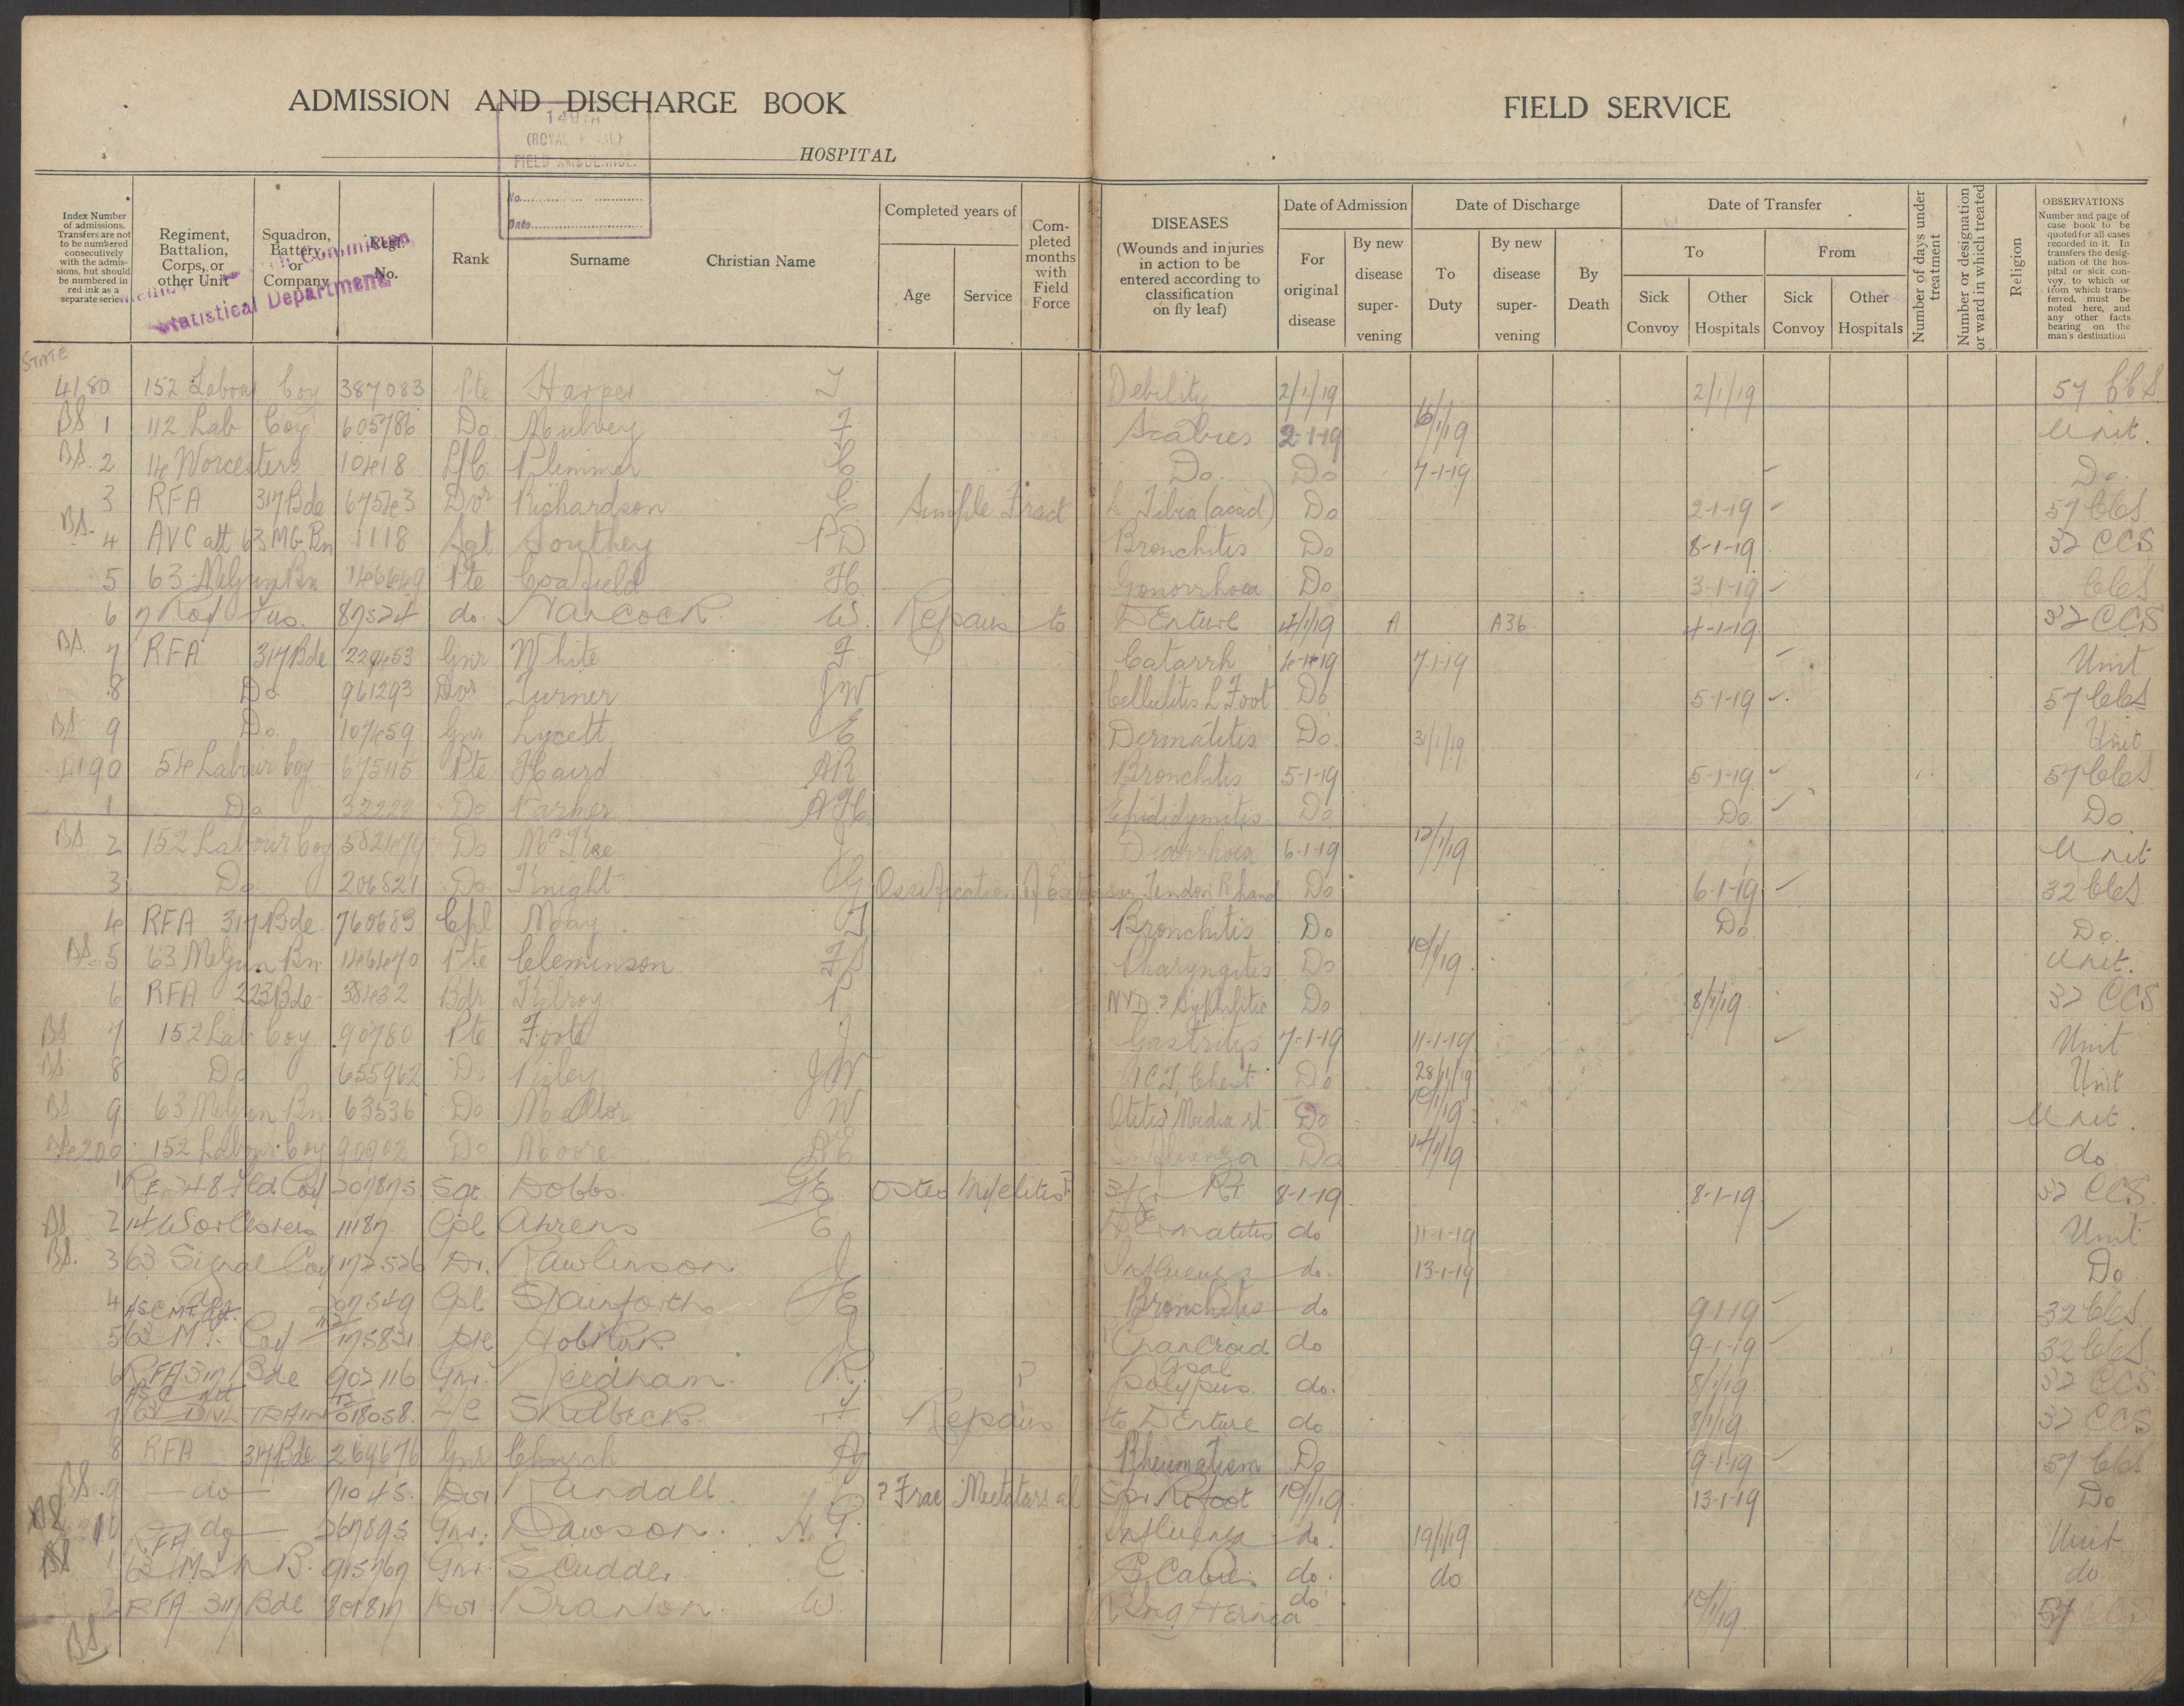 ADMISSION AND DISCHARGE BOOK
FIELD SERVICE
149TH
(ROYAL NAVAL)
FIELD AMBULANCE.
No.
Date
HOSPITAL
Statistical Department
Index Number of admissions. Transfers are not to be numbered consecutively with the admissions, but should be numbered in red ink as a separate series
Regiment, Battalion, Corps, or other Unit
Squadron, Battery, or Company
Regl. No.
Rank
Surname
Christian Name
Completed years of
Age
Service
Completed months with Field Force
DISEASES (Wounds and injuries in action to be entered according to classification on fly leaf)
Date of Admission
For original disease
By new disease supervening
Date of Discharge
To Duty
By new disease supervening
By Death
Date of Transfer
To
From
Sick Convoy
Other Hospitals
Sick Convoy
Other Hospitals
Number of days under treatment
Number or designation or ward in which treated
Religion
OBSERVATIONS
Number and page of case book to be quoted for all cases recorded in it. In transfers the designation of the hospital or sick convoy, to which or from which transferred, must be noted here, and any other facts bearing on the man's destination
STATE
4180 152 Labour Coy 387083 Pte Harper J Debility 2/1/19 2/1/19 57 CCS
BS 1 112 Lab Coy 605786 Do Mulvey F Scabies 2-1-19 6/1/19 Unit.
BS. 2 14 Worcesters 10418 L/C. Plimmer C Do. Do 7-1-19 Do.
3 RFA 317 Bde 67543 Dvr Richardson C Simple Fract L Tibia (accid) Do 2-1-19 57 CCS
BS. 4 AVC att 63 MG. Bn 1118 Sgt Southey PD Bronchitis Do 8-1-19 32 CCS
5 63 McGun Bn Pte Coafield H Gonorrhoea Do 3-1-19 CCS
6 7 Roy Fus. 87524 do. Hancock W. Repairs to Denture 4/1/19 A A36 4-1-19 32 CCS
BS. 7 RFA 317 Bde 229453 Gnr White F. Catarrh 4-1-19 7-1-19 Unit
8 Do 961293 Dvr Turner JW Cellulitis L Foot Do 5-1-19 57 CCS
BS 9 Do. 107459 Gnr Lycett E Dermatitis Do. 31/1/19 Unit
4190 54 Labour Coy 675115 Pte Haird AR Bronchitis 5-1-19 5-1-19 57 CCS
1 Do 32222 Do Parker AH Epididymitis Do Do Do
BS 2 152 Labour Coy 582479 Do McKee J Diarrhoea 6-1-19 12/1/19 Unit
3 Do 206821 Do Knight CG Ossification of Extensor Tendon R hand Do 6-1-19 32 CCS
4 RFA 317 Bde 760683 Cpl May J Bronchitis Do Do Do.
BS. 5 63 McGun Bn 146470 Pte Cleminson FS Pharyngitis Do 10/1/19 Unit.
6 RFA 223 Bde 38432 Bdr Kilroy P NYD ? Syphilitic Do 8/1/19 32 CCS
BS 7 152 Lab Coy 90780 Pte Foote J Gastritis 7-1-19 11-1-19 Unit
BS 8 Do 655962 Do Risley JW ICT Chest Do 28/1/19 Unit
BS 9 63 McGun Bn 63536 Do Mellor W Otitis Media rt Do 10/1/19 Unit.
4200 152 Labour Coy 90902 Do Moore Influenza Do 14/1/19 do
1 RE 248 Fld Coy 207875 Sgt Dobbs. GE Osteo Myelitis ? Rt 8-1-19 8-1-19 32 CCS.
BS. 2 14 Worcesters 11187 Cpl Ahrens E Dermatitis do 11-1-19 Unit
BS. 3 63 Signal Coy 172526 Dr. Rawlinson J Influenza do. 13-1-19 Do
4 do 207549 Cpl Stainforth JE Bronchitis do 9-1-19 32 CCS
ASC MT att.
5 63 M.T. Coy 175831 Pte Hobkirk J Chancroid do 9-1-19 32 CCS
6 RFA 317 Bde 902116 Gnr. Needham. R. ? Nasal polypus. do. 8/1/19 32 CCS
ASC att
7 63 DIVL TRAIN 018058. L/C Skelbeck. F Repairs to Denture do 8/1/19 32 CCS
8 RFA 317 Bde 269676 Gnr Church A Rheumatism Do 9-1-19 57 CCS
BS. 9 do 71045. Dvr Randall ? Frac Meetatarsal Rt foot 10/1/19. 13-1-19 Do
BS RFA do 267895 Gnr. Dawson. H. G. Influenza do. 19/1/19 Unit
BS 1 915767 Gnr. Scudder. C. Scabies do. do do
2 RFA. 317 Bde 801817 Dvr. Branton. W. Ing. Hernia do 10/1/19. 57 CCS
BS